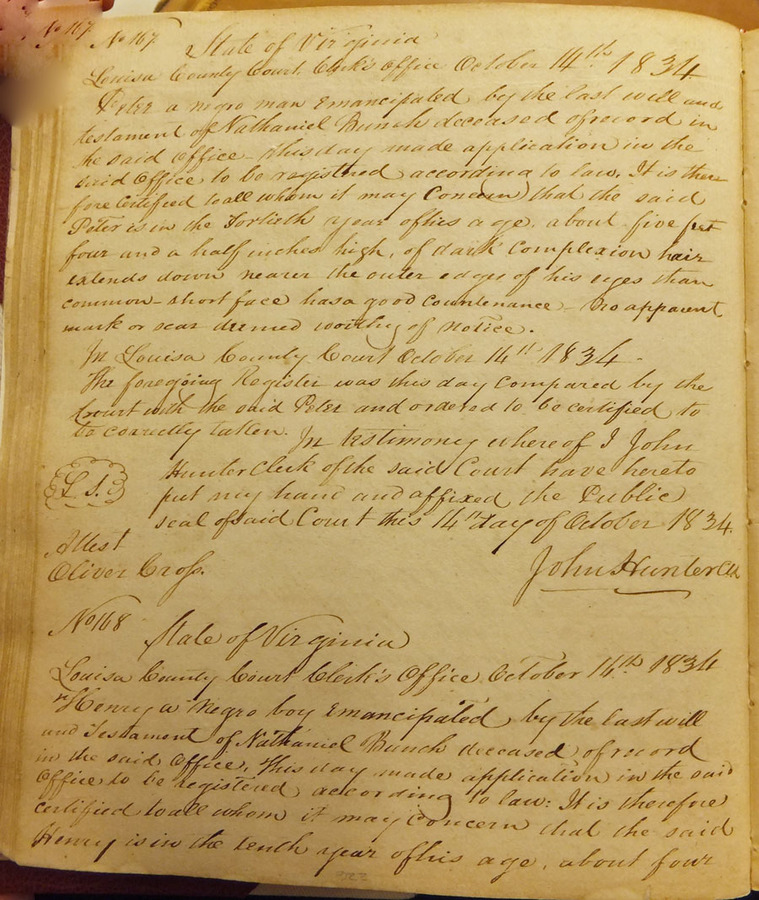 No 167 No 167 State of Virginia
Louisa County Court Clerk's Office October 14th 1834
Peter a negro man Emancipated by the last will and
testament of Nathaniel Bunch deceased of record in
the said Office - this day made application in the
said Office to be registered according to law. It is there-
fore Certified to all whom it may Concern that the said
Peter is in the Fortieth year of his age, about five feet
four and a half inches high, of dark Complexion hair
extends down nearer the outer edges of his eyes than
common - short face has a good Countenance - No apparent
mark or scar deemed worthy of notice.
In Louisa County Court October 14th 1834 -
The foregoing Register was this day compared by the
Court with the said Peter and ordered to be certified to
be correctly taken. In testimony whereof I John
Hunter Clerk of the said Court have hereto
L. S. put my hand and affixed the Public
seal of said Court this 14th day of October 1834.
Attest
Oliver Cross. John Hunter Clk
No 168
State of Virginia
Louisa County Court Clerk's Office October 14th 1834
Henry a Negro boy Emancipated by the last will
and Testament of Nathaniel Bunch deceased of record
in the said Office, This day made application in the said
Office to be registered according to law: It is therefore
certified to all whom it may Concern that the said
Henry is in the tenth year of his age, about four